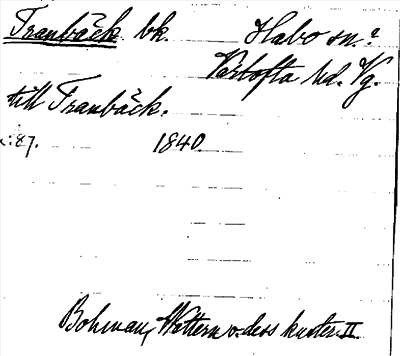 Tranbäck bk. Habo sn.?
Vartofta hd. Vg.
till Tranbäck.
:87. 1840.
Bohman, Wettern o. dess kuster. II